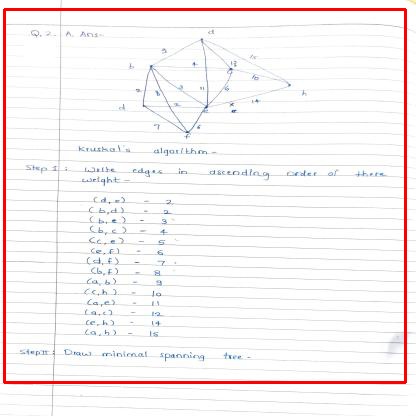 Q. 2. A. Ans-
d
9
15
b
4
13
c
10
2
8
3
11
6
h
d
2
e
14
7
6
f
Kruskal's algorithm -
Step I : Write edges in ascending order of there
weight -
(d,e) - 2
(b,d) - 2
(b,e) - 3
(b,c) - 4
(c,e) - 5
(e,f) - 6
(d,f) - 7
(b,f) - 8
(a,b) - 9
(c,h) - 10
(a,e) - 11
(a,c) - 12
(e,h) - 14
(a,h) - 15
Step II : Draw minimal spanning tree -